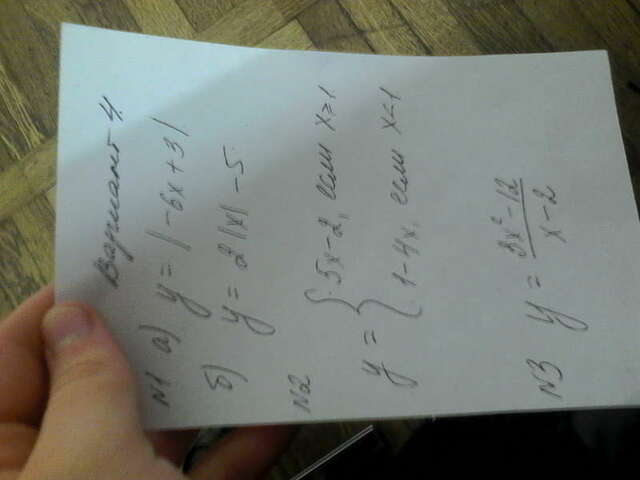 Вариант 4.
№1 а) y = |-6x+3|
б) y = 2|x| -5.
№2
y = { 5x-2, если x≥1
1-4x, если x<1
№3 y = \frac{3x²-12}{x-2}